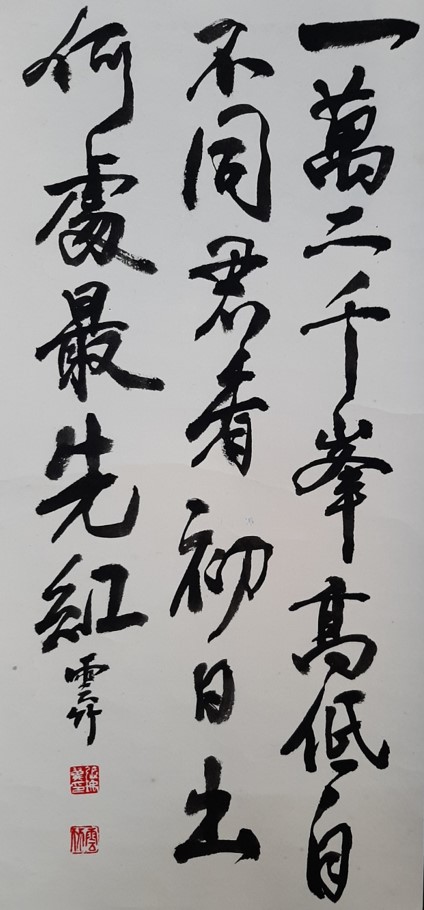 一萬二千峯高低自
不同君看初日出
何處最先紅
雲竹